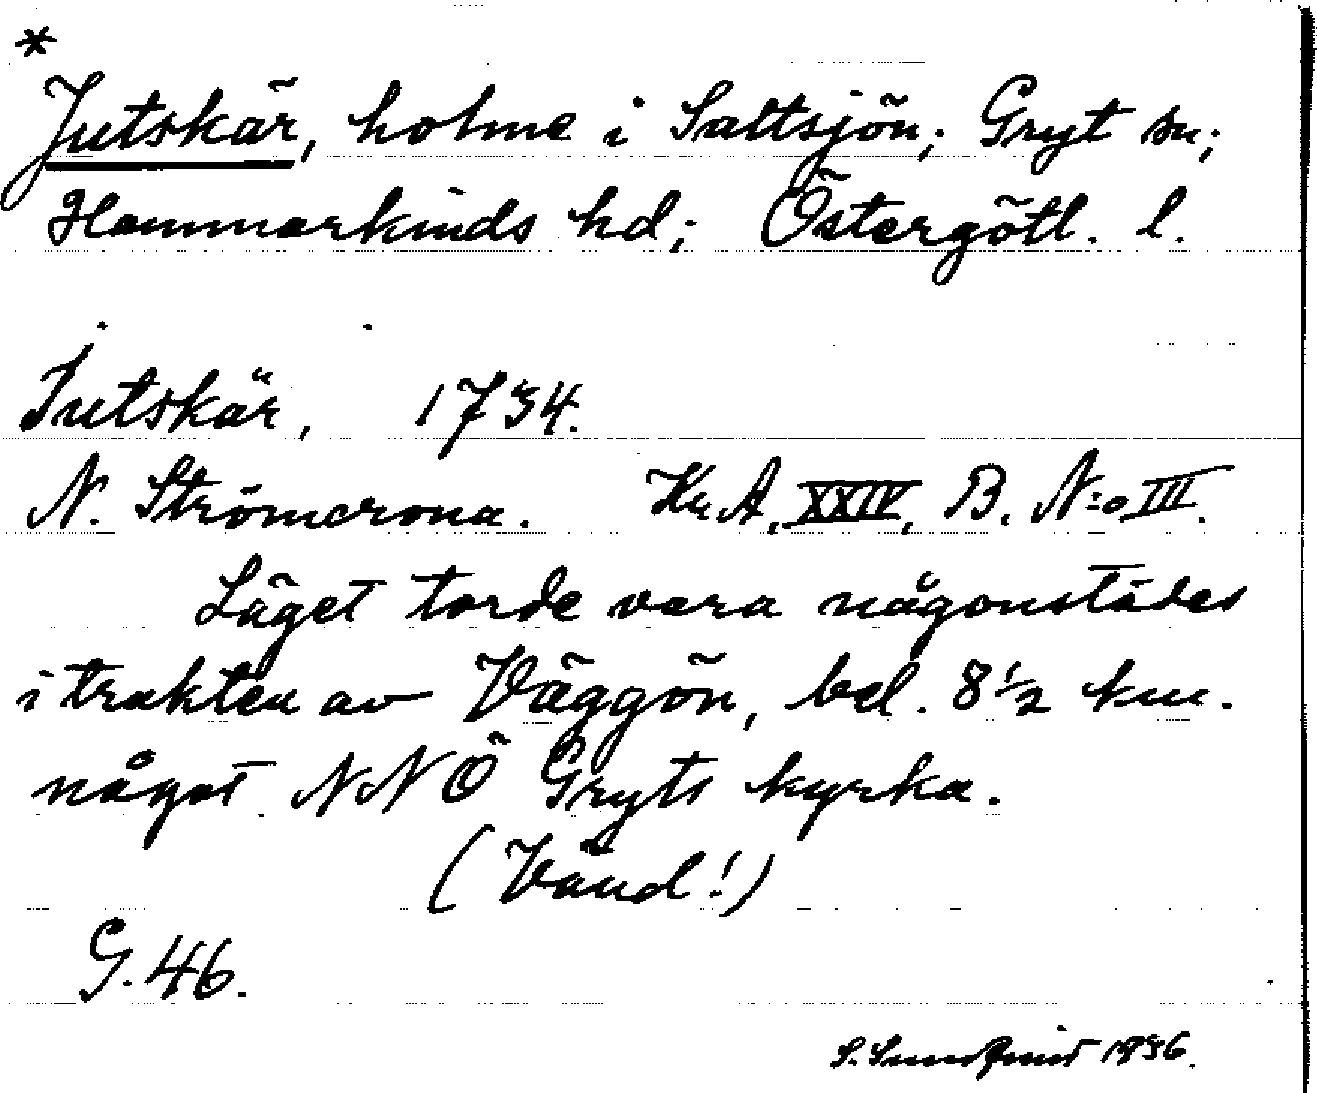 *
Jutskär, holme i Saltsjön; Gryt sn;
Hammarkinds hd; Östergötl. l.
Jutskär, 1734.
N. Strömcrona. Kr.A. XXIV, B. N:o III.
Läget torde vara någonstädes
i trakten av Väggön, bel. 8 1/2 km.
något NNÖ Gryts kyrka.
(Vänd!)
G. 46.
S. Sundqvist 1936.